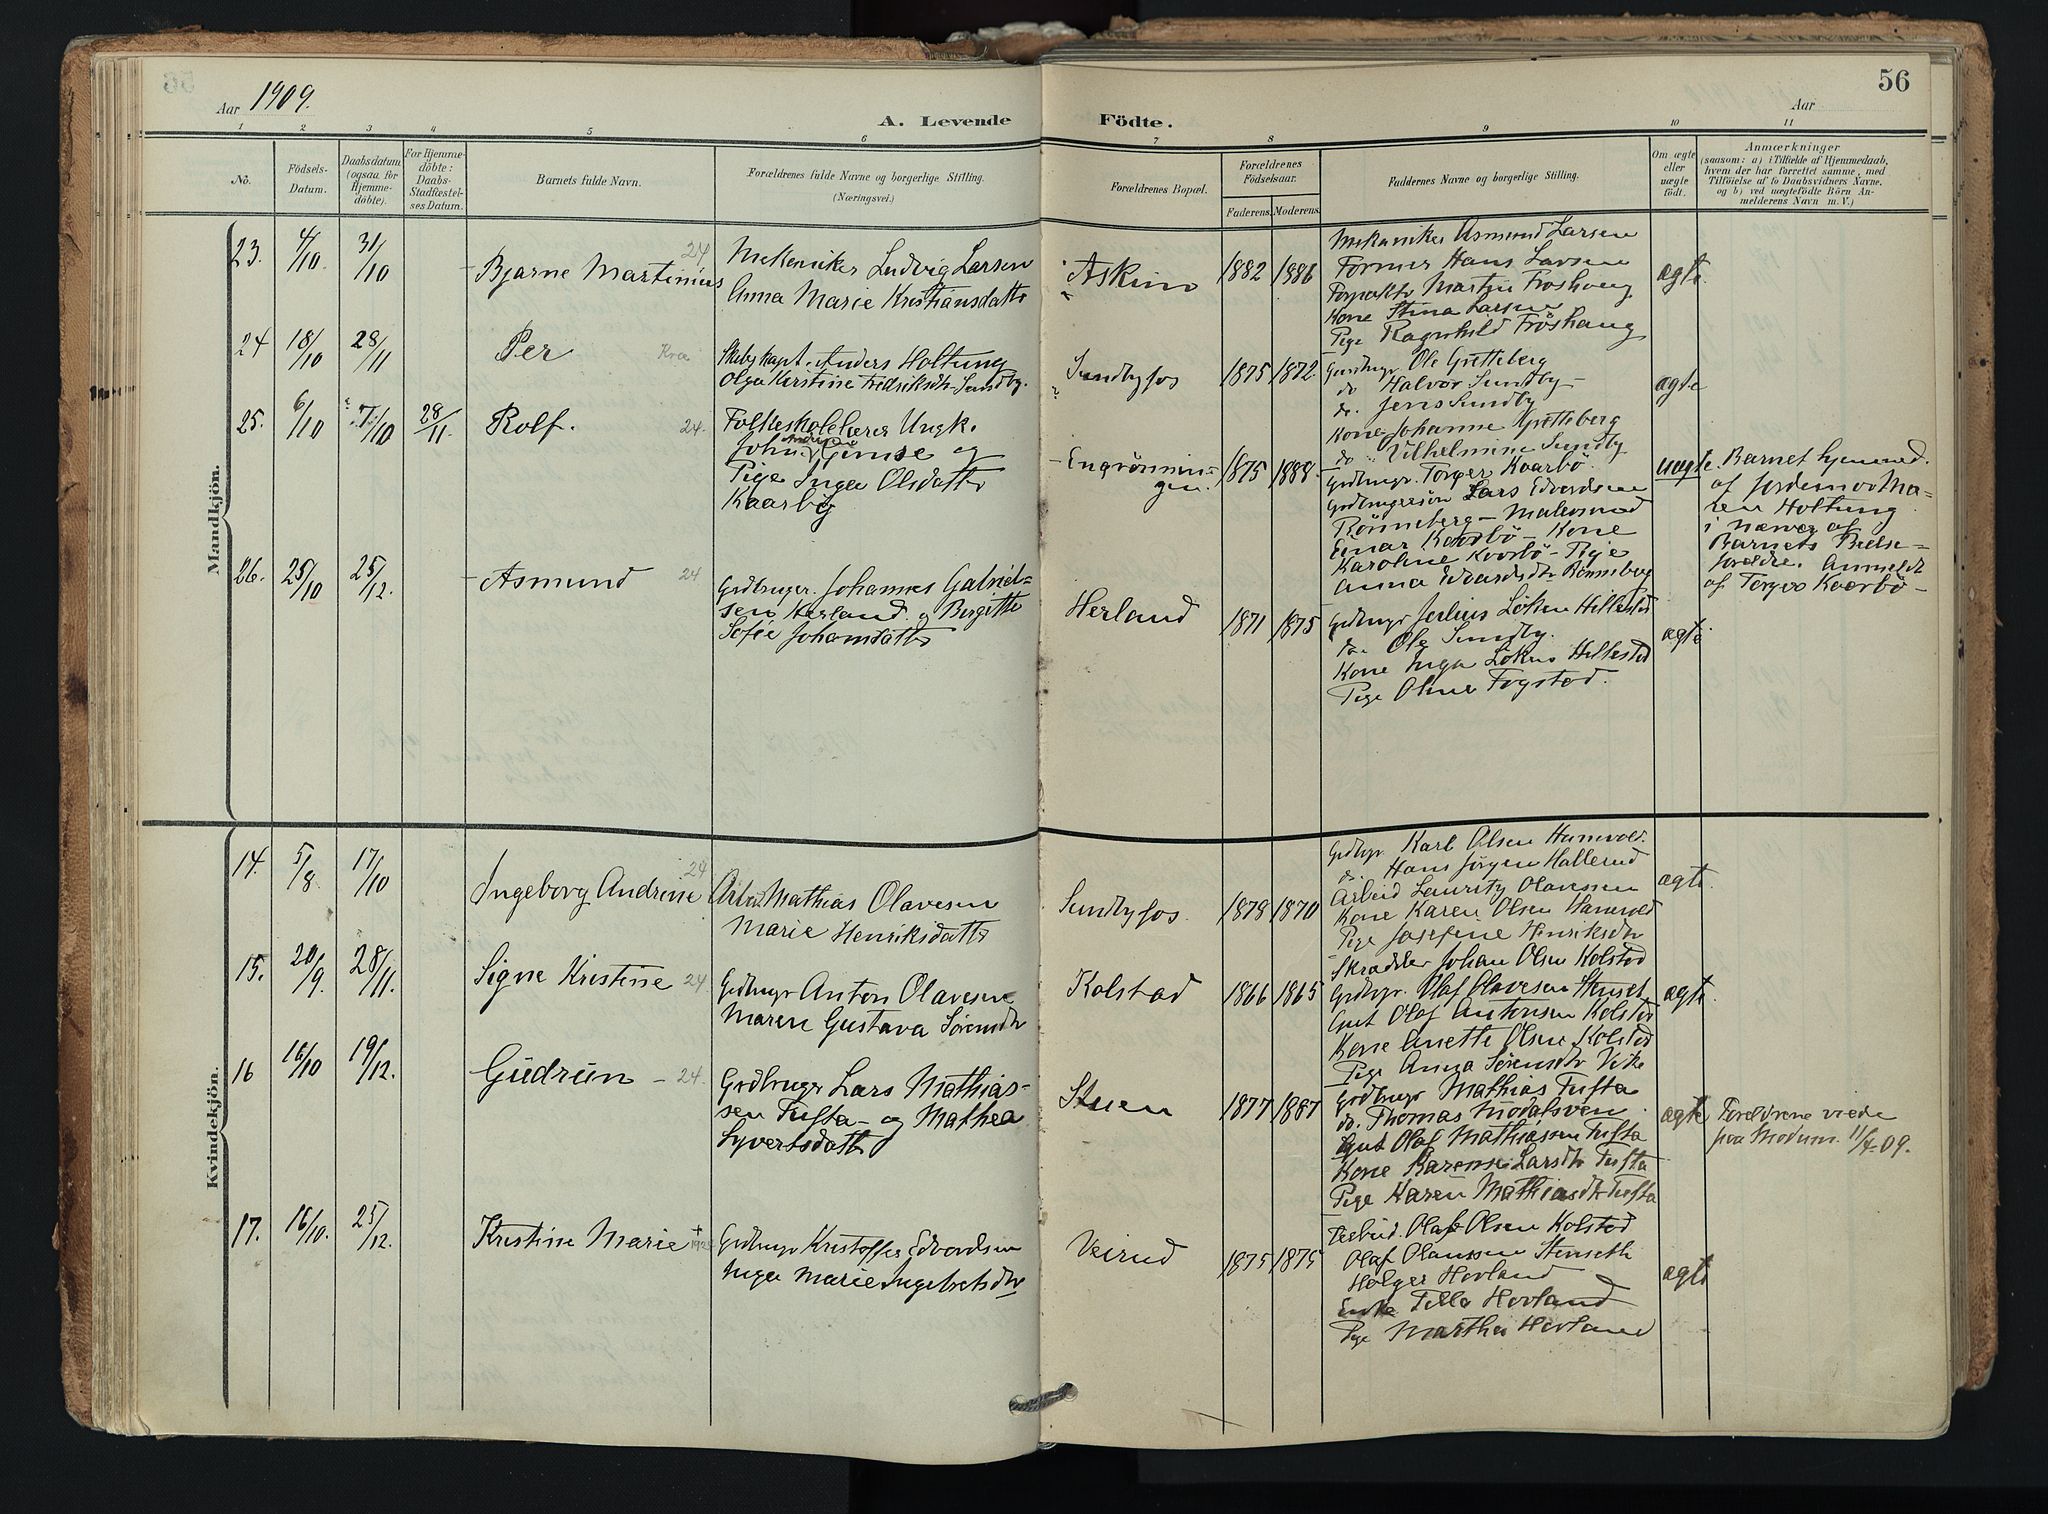 56
Aar 1909.
Aar
A. Levende Födte.
1 2 3 4 5 6 7 8 9 10 11
No.
Födsels-
Datum.
Daabsdatum
(ogsaa for
Hjemme-
döbte).
For Hjemme-
döbte:
Daabs-
Stadfæstel-
ses Datum.
Barnets fulde Navn.
Forældrenes fulde Navne og borgerlige Stilling.
(Næringsvei.)
Forældrenes Bopæl.
Forældrenes
Födselsaar.
Faderens. Moderens.
Faddernes Navne og borgerlige Stilling.
Om ægte
eller
uægte
født.
Anmærkninger
(saasom: a) i Tilfælde af Hjemmedaab,
hvem der har forrettet samme, med
Tilföielse af to Daabsvidners Navne,
og b) ved uægtefödte Börn An-
melderens Navn m. V.)
Mandkjön.
23. 4/10 31/10
Bjarne Martinius 24
Mekaniker Ludvig Larsen
Anna Marie Kristiansdattr
Askim 1882 1886
Mekaniker Asmund Larsen
Former Hans Larsen
Martin Fröshaug
Kone Stina Larsen
Pige Ragnhild Fröshaug
ægte
24 18/10 28/11
Per
Skibskapt. Anders Holtung
Olga Kirstine Fredriksdtr Sundby.
Sundbyfos 1875 1872
Gardbrugr Ole Gretteberg
do Halvor Sundby
do. Jens Sundby
Kone Johanne Gretteberg
do Vilhelmine Sundby
ægte
25. 6/10 7/10 28/11.
Rolf. 24.
Folkeskolelærer Ungk.
John Andersen og
Pige Inga Olsdattr
Kaarbö
Engrönnin-
gen. 1875 1888.
Grdbrugr. Torger Kaarbö
Grdbrugersön Lars Edvardsen
Rönneberg - Malersvend
Einar Kaarbö - Kone
Karoline Kaarbö - Pige
Anna Edvardsdtr Rönneberg
uægte.
Barnet hjemmed.
af Jordemor Ma-
ren Holtung
i Nærvær af
Barnets Bedste-
foreldre. Anmeldt
af Torger Kaarbö -
26. 25/10 25/12.
Asmund 24
Grdbruger. Johannes Gabriel-
sen Herland og Birgitte
Sofie Johansdattr
Herland 1871 1875
Grdbrugr Julius Löken Hillestad
do. Ole Sundby.
Kone Inga Löken Hillestad
Pige Oline Fogstad.
ægte
Kvindekjön.
14. 5/8. 17/10
Ingeborg Andrine 24
Arbeid. Mathias Olavesen
Marie Henriksdattr
Sundbyfos. 1878 1870
Grdbrgr Karl Olsen Hanevold.
do. Hans Jørgen Hallerud
Arbeid Lauritz Olavesen
Kone Karen Olsen Hanevold
Pige Josefine Henriksdtr
ægte.
15. 20/9. 28/11.
Signe Kristine 24
Grdbrugr Anton Olavesen
Maren Gustava Sörensdtr
Kolstad 1866 1865
Skrædder Johan Olsen Kolstad
Grdbrgr. Olaf Olavesen Stenset
Gut Olaf Antonsen Kolstad
Kone Anette Olsen Kolstad
Pige Anna Sørensdtr Vike
ægte.
16 16/10 19/12.
Gudrun - 24.
Grdbrugr Lars Mathias-
sen Tufta - og Mathea
Syvertsdattr
Stuen 1877 1887
Grdbrugr Mathias Tufta
do. Thomas Modalsveen
Gut Olaf Mathiassen Tufta
Kone Karense Larsdtr Tufta
Pige Karen Mathiasdtr Tufta
ægte
Foreldrene viede
paa Modum. 11/4-09.
17. 16/10. 25/12.
Kristine Marie +
Grdbrugr Kristoffer Edvardsen
Inga Marie Ingebretsdtr
Veirud 1875 1875
Arbeid. Olaf Olsen Kolstad
Olaf Olaussen Stenseth
Holger Hovland
Enke Tilla Hovland
Pige Martha Hovland
ægte